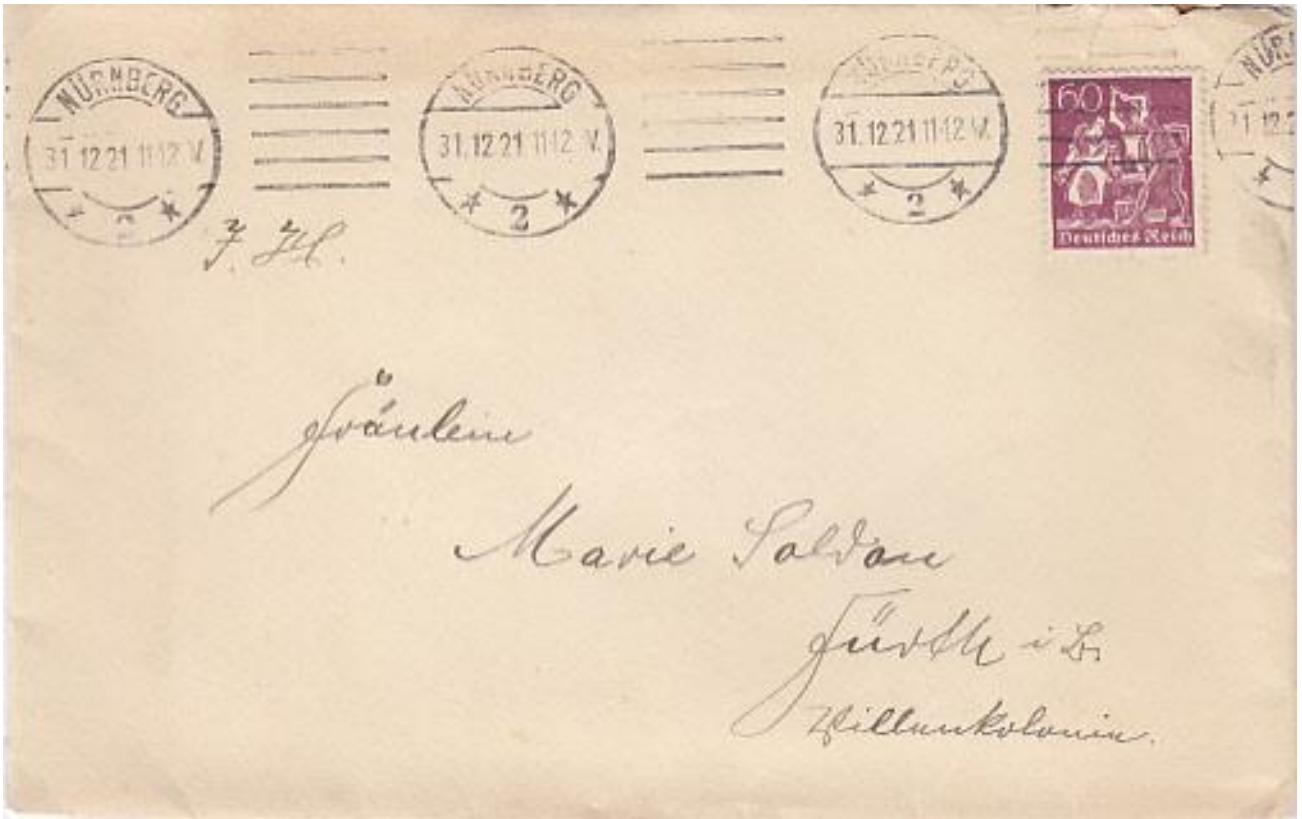 NÜRNBERG
31.12.21 11-12 V.
2
NÜRNBERG
31.12.21 11-12 V.
2
NÜRNBERG
31.12.21 11-12 V.
2
NÜR
31.12.2
60
Deutsches Reich
Fräulein
Marie Soldan
Fürth i B.
Villenkolonie.